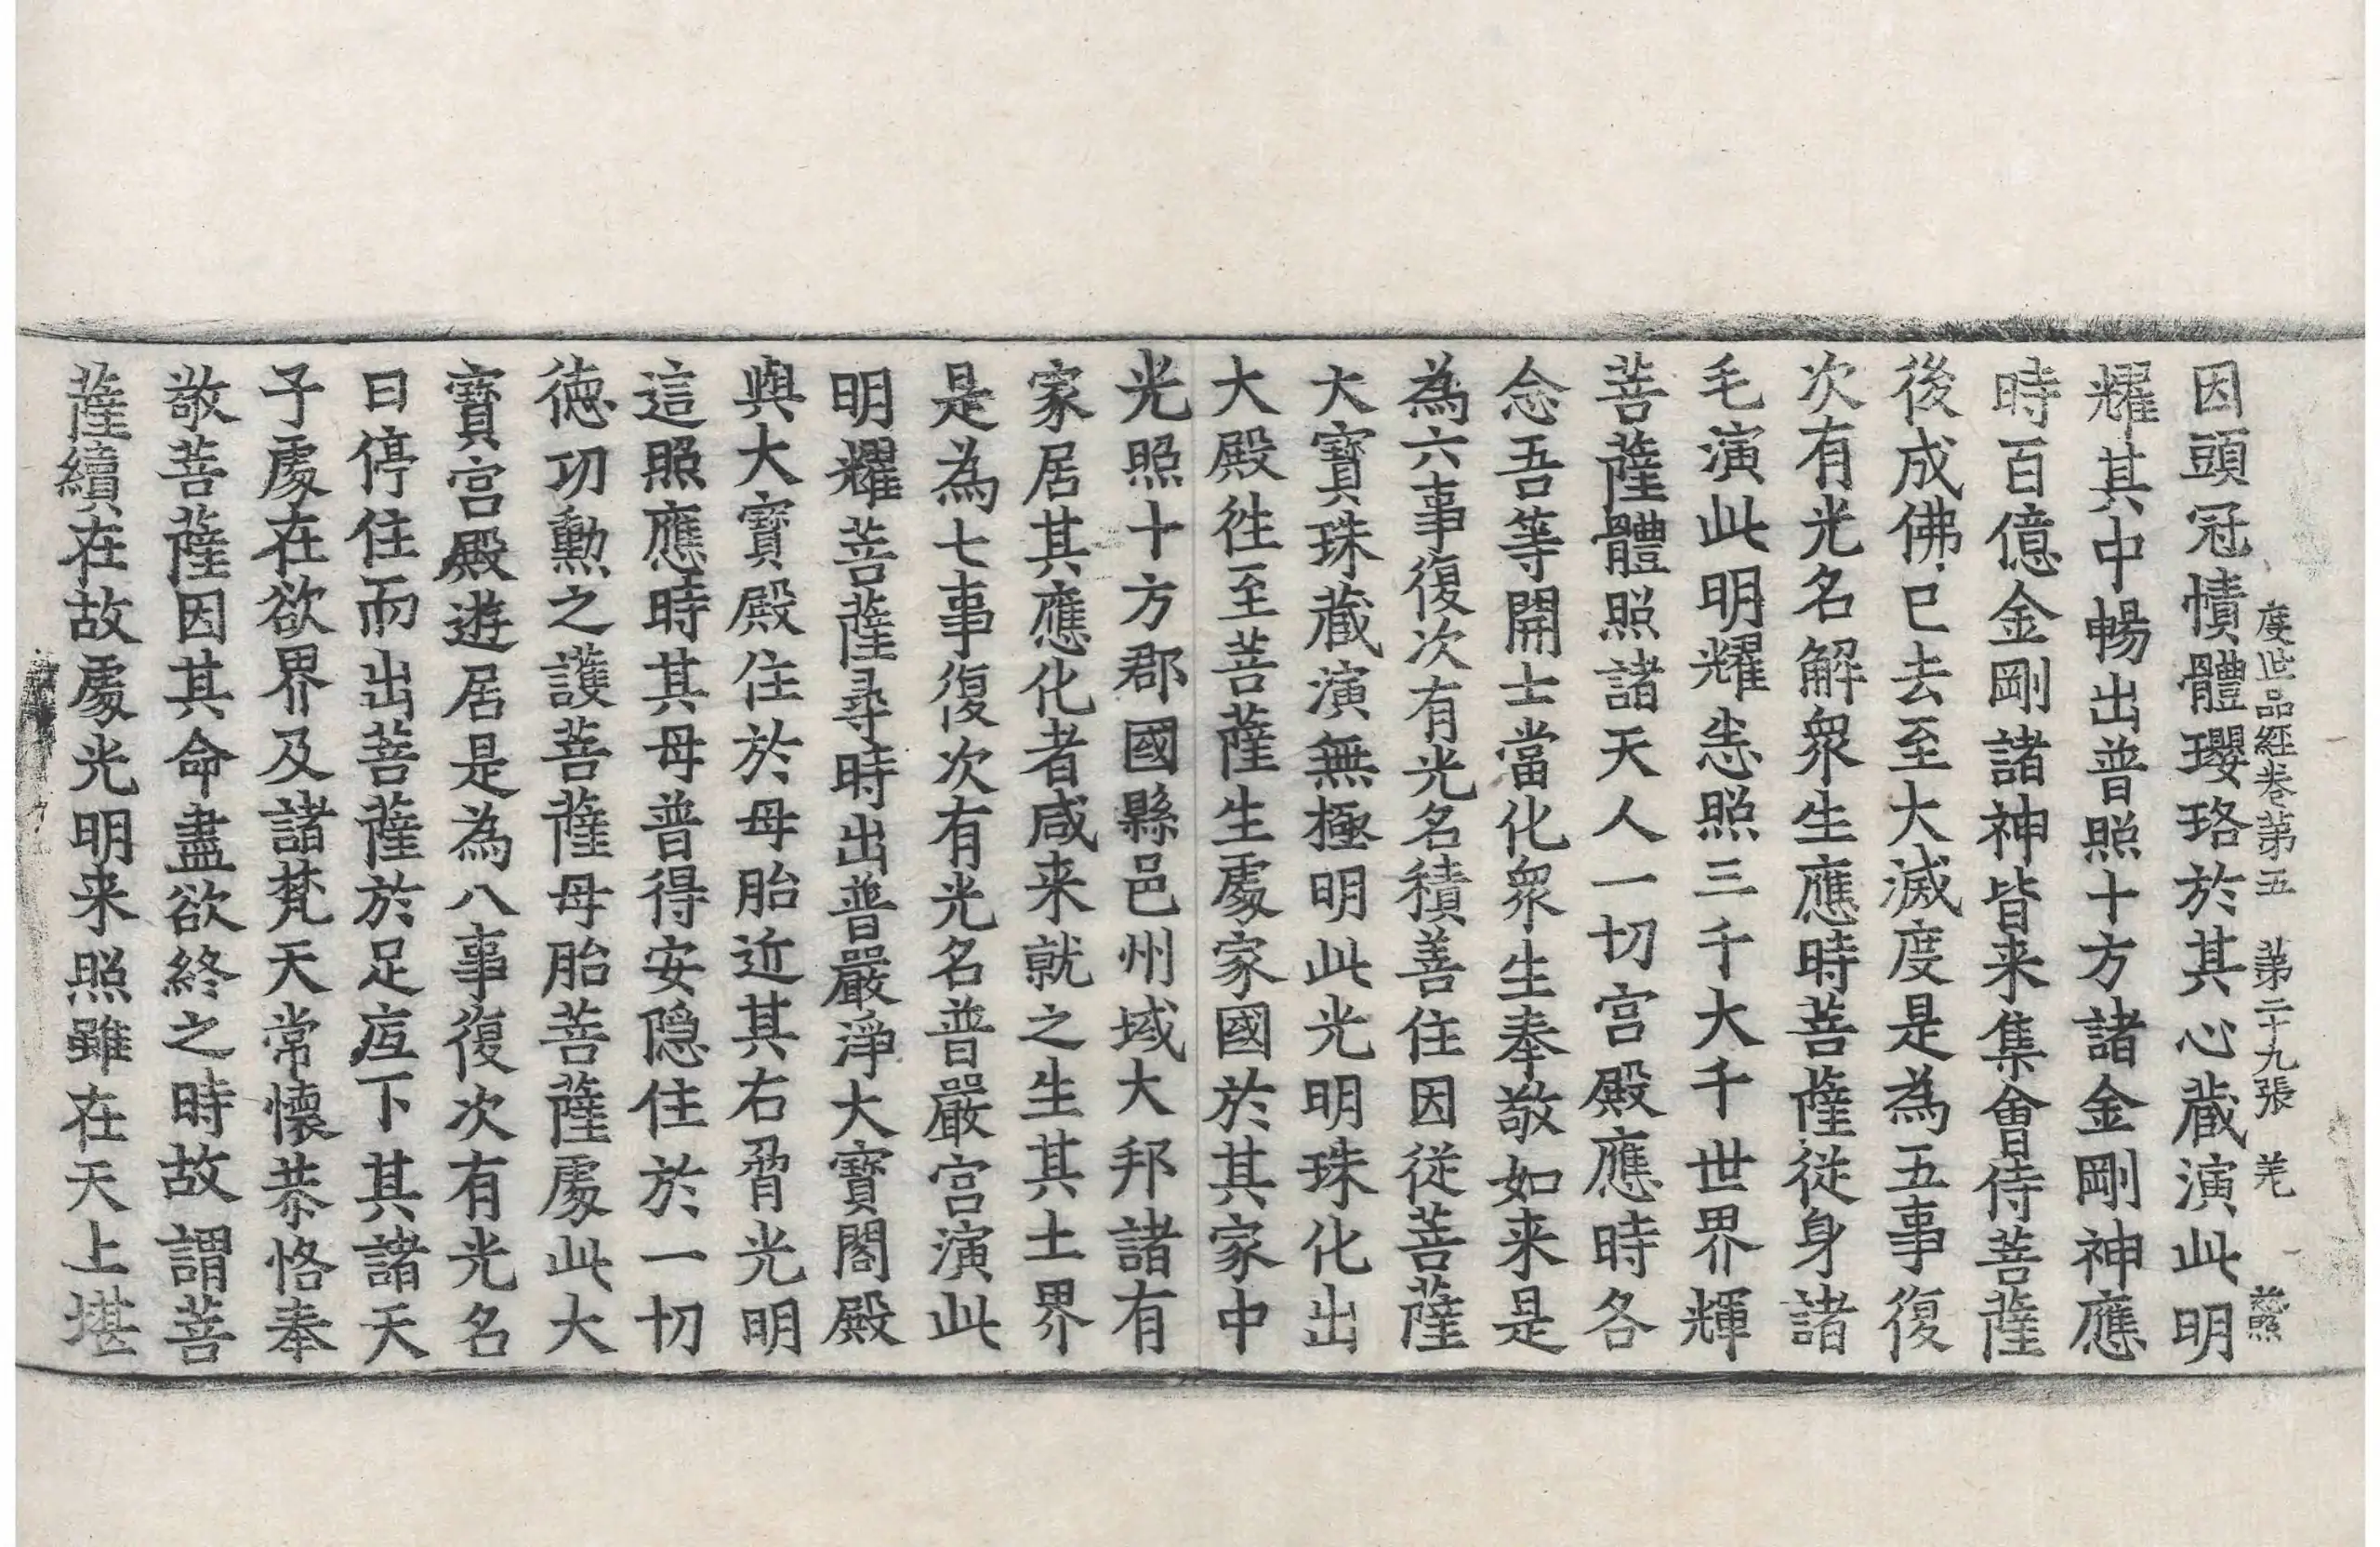 度世品經卷第五　第二十九張　羌
因頭冠幘體瓔珞於其心藏演此明
耀其中暢出普照十方諸金剛神應
時百億金剛諸神皆来集會侍菩薩
後成佛已去至大滅度是為五事復
次有光名解衆生應時菩薩從身諸
毛演此明耀悉照三千大千世界輝
菩薩體照諸天人一切宮殿應時各
念吾等開士當化衆生奉敬如来是
為六事復次有光名積善住因從菩薩
大寶珠藏演無極明此光明珠化出
大殿往至菩薩生處家國於其家中
光照十方郡國縣邑州域大邦諸有
家居其應化者咸来就之生其土界
是為七事復次有光名普嚴宮演此
明耀菩薩尋時出普嚴淨大寶閣殿
與大寶殿住於母胎近其右脅光明
這照應時其母普得安隱住於一切
德功勳之護菩薩母胎菩薩處此大
寶宮殿遊居是為八事復次有光名
曰停住而出菩薩於足疘下其諸天
子處在欲界及諸梵天常懷恭恪奉
敬菩薩因其命盡欲終之時故謂菩
薩續在故處光明来照雖在天上堪